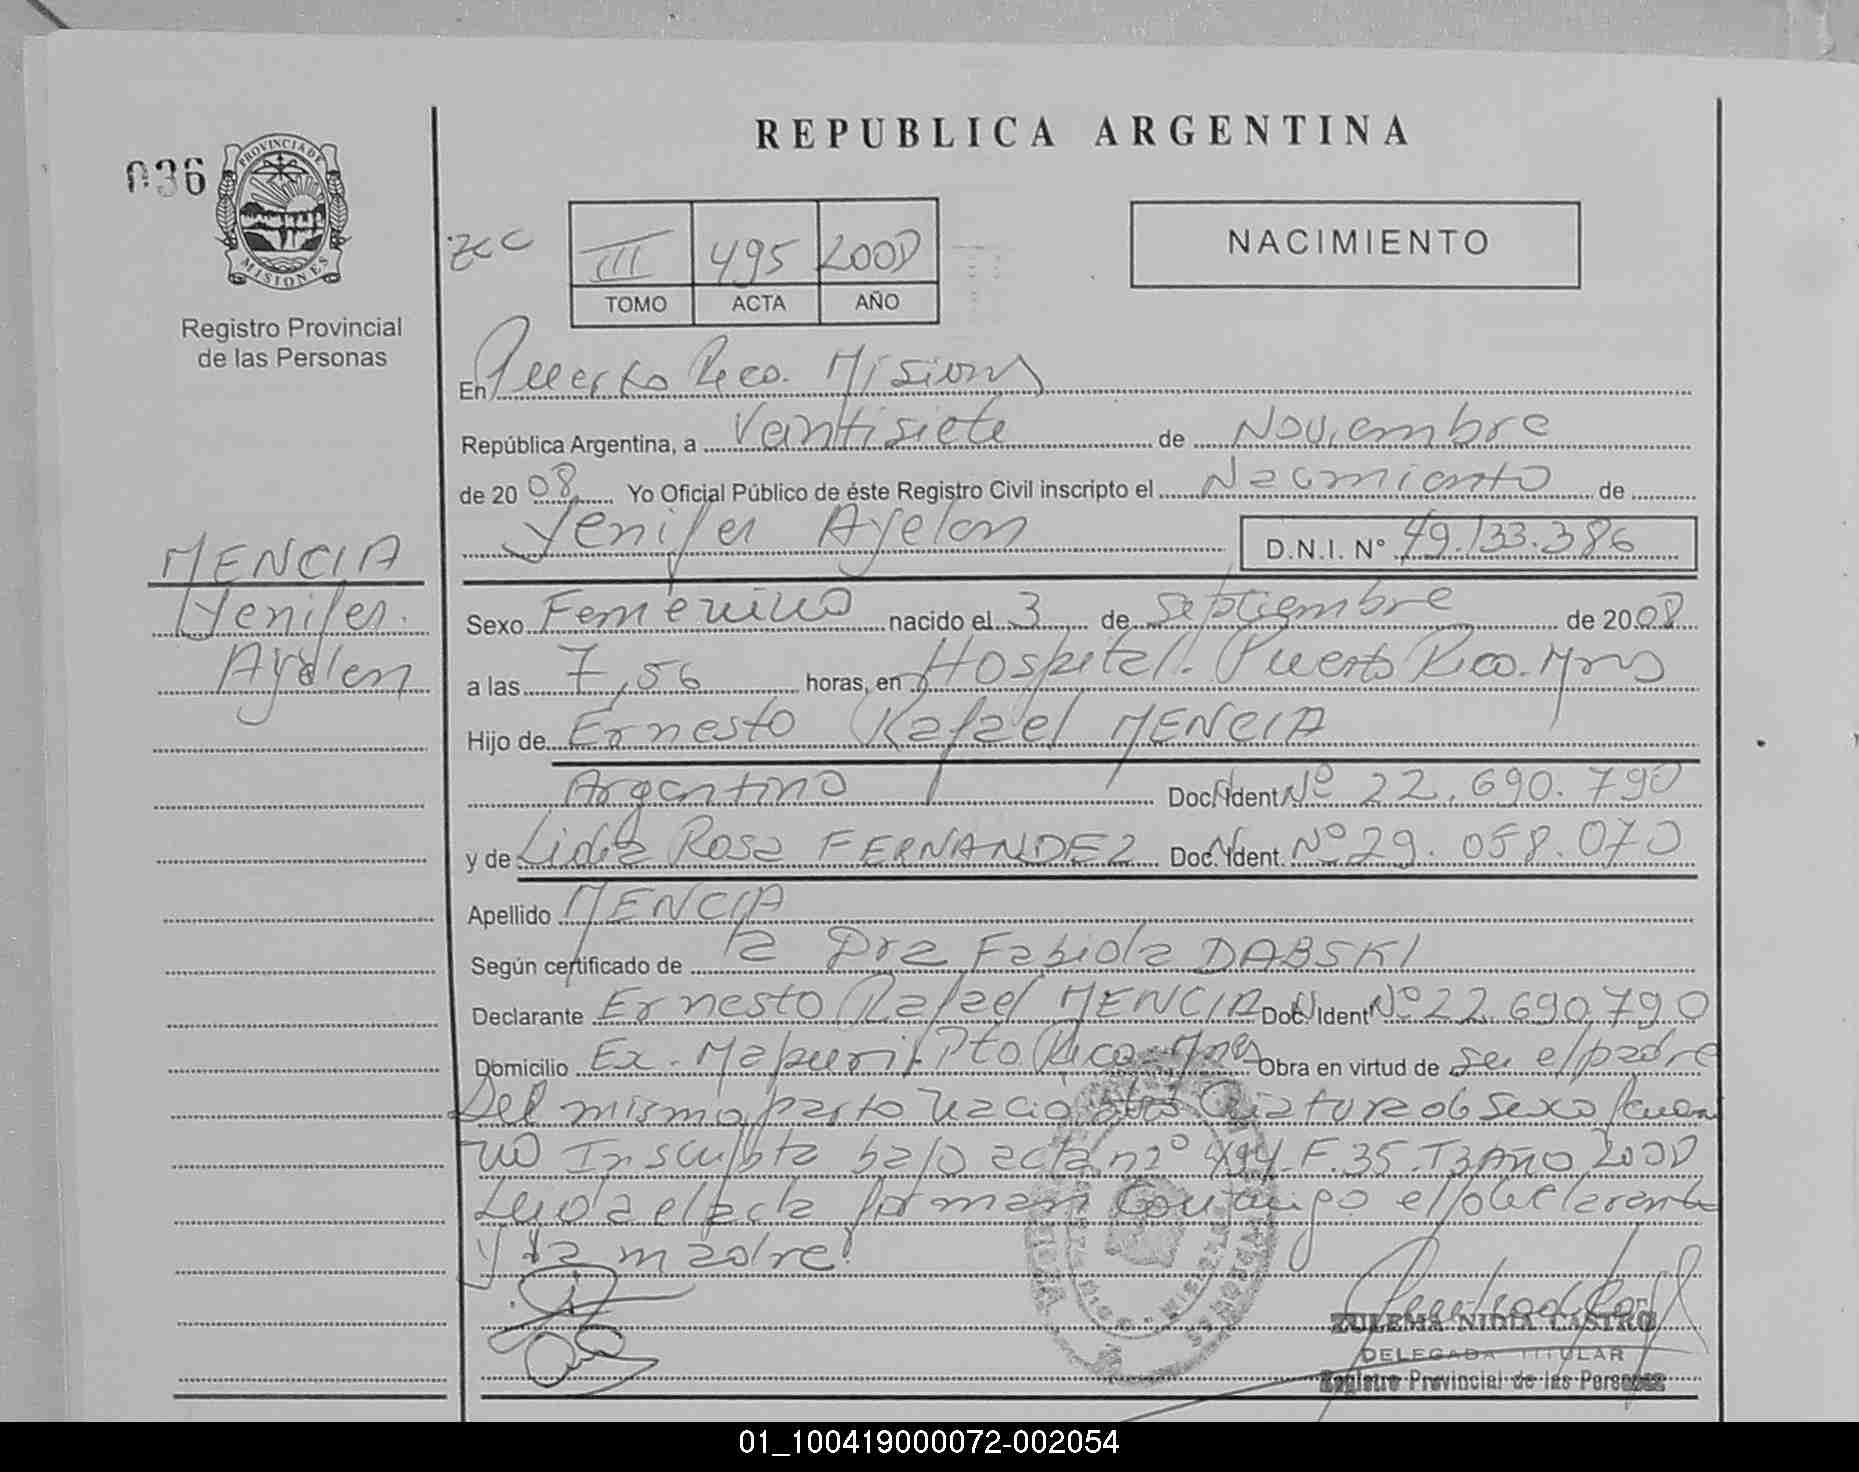 036
PROVINCIA DE
MISIONES
Registro Provincial
de las Personas
REPUBLICA ARGENTINA
III 495 2008
TOMO ACTA AÑO
NACIMIENTO
En Puerto Rico. Misiones
República Argentina, a Veintisiete de Noviembre
de 20 08 Yo Oficial Público de éste Registro Civil inscripto el Nacimiento de
Yenifer Ayelen D.N.I. Nº 49.133.386
MENCIA
Yenifer
Ayelen
Sexo Femenino nacido el 3 de Septiembre de 2008
a las 7,56 horas, en Hospital. Puerto Rico. Mnes
Hijo de Ernesto Rafael MENCIA
Argentino Doc. Ident Nº 22.690.790
y de Lidia Rosa FERNANDEZ Doc. Ident. Nº 29.058.070
Apellido MENCIA
Según certificado de la Dra Fabiola DABSKI
Declarante Ernesto Rafael MENCIA Doc. Ident Nº 22.690.790
Domicilio Ex. Pto Rico - Mnes Obra en virtud de ser el padre
Del mismo parto nacio otra Criatura de sexo femeni
no Inscripta bajo acta nº 494. F. 35. T3 Año 2008
Leida el acta firman conmigo el declarante
y la madre
ZULEMA NIDIA CASTRO
DELEGADA TITULAR
Registro Provincial de las Personas
01_100419000072-002054